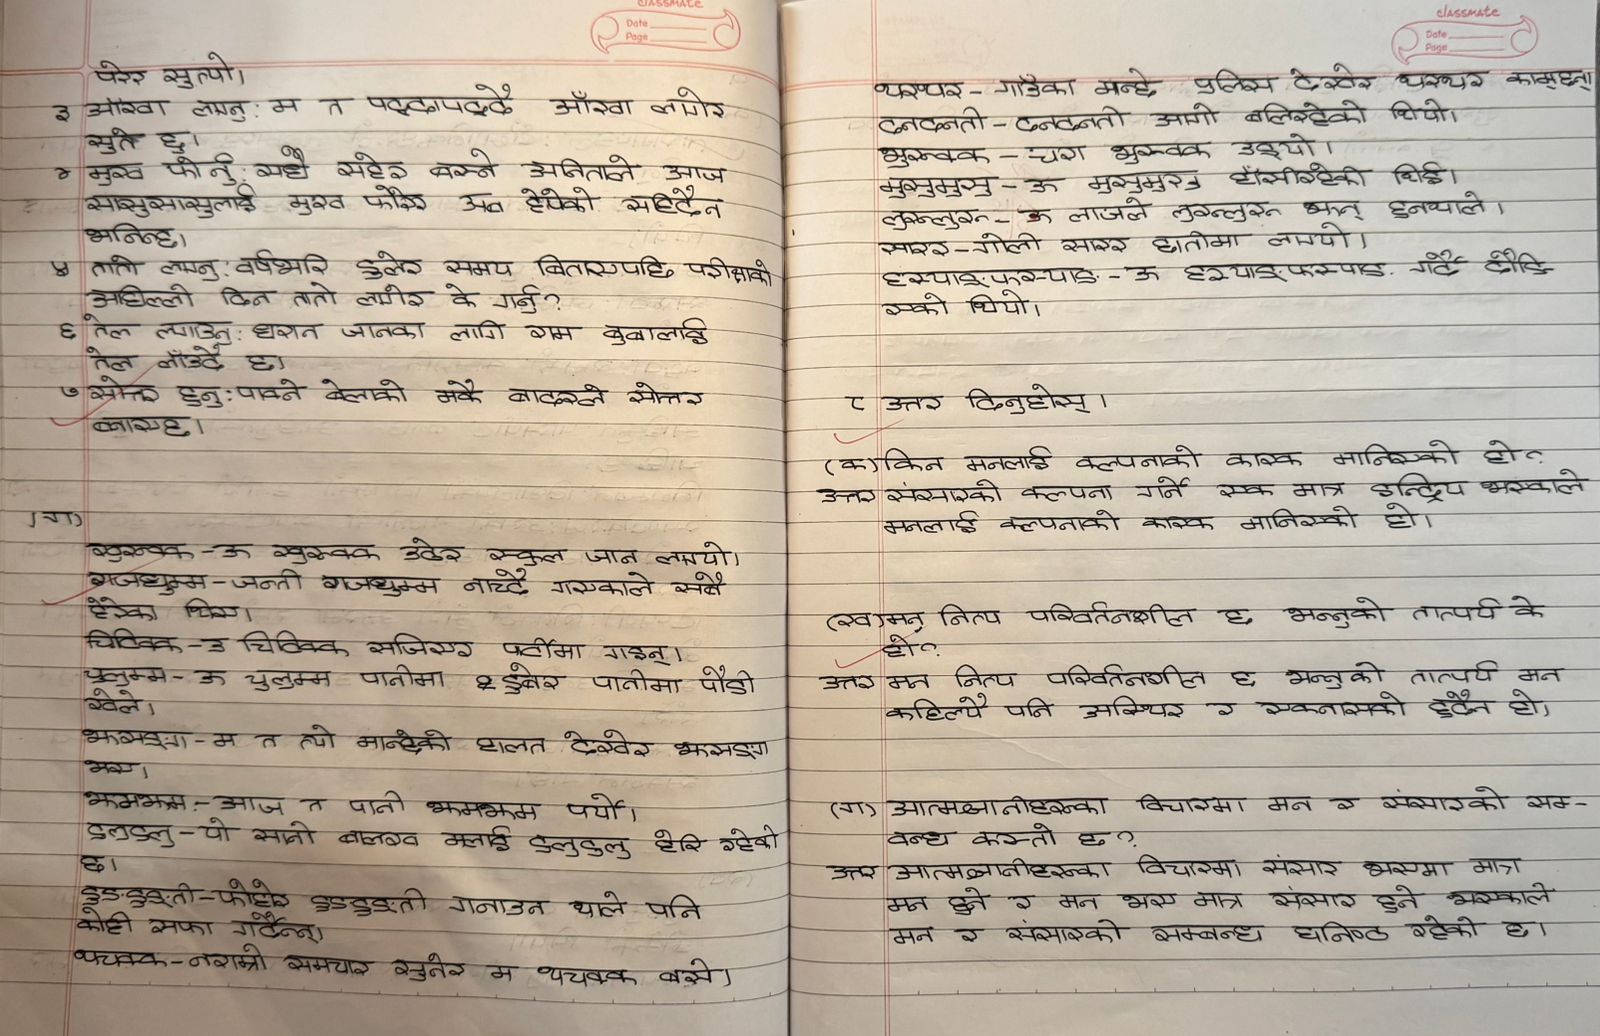 classmate
Date
Page
परेर सुत्यो।
३ आँखा लाग्नु: म त पढ्दापढ्दै आँखा लागेर
सुते छु।
४ मुख फोर्नु: सधैँ सहेर बस्ने अनिताले आज
सासुससुरालाई मुख फोरेर अब हेपेको सहिदैन
भनिन्।
५ तातो लाग्नु: वर्षभरि डुलेर समय बिताएपछि परीक्षाको
अघिल्लो दिन तातो लागेर के गर्नु?
६ तेल लगाउनु: धरान जानका लागि राम बुबालाई
तेल लाउँदै छ।
७ सोत्तर हुनु: पाक्ने बेलाको मकै बादरले सोत्तर
बनाएछ।
(ग)
खुरुक्क - ऊ खुरुक्क उठेर स्कुल जान लाग्यो।
राजधुम्म - जन्ती राजधुम्म नाच्दै गएकाले सबै
हेरेका थिए।
चिटिक्क - उ चिटिक्क सजिएर पार्टीमा गइन्।
चुलुम्म - ऊ चुलुम्म पानीमा डुबेर पानीमा पौडी
खेले।
झसङ्ग - म त त्यो मान्छेको हालत देखेर झसङ्ग
भए।
झमझम - आज त पानी झमझम पर्यो।
टुलुटुलु - यो सानो बालख मलाई टुलुटुलु हेरि रहेको
छ।
डुङडुङ्ती - फोहोर डुङडुङ्ती गनाउन थाले पनि
कोही सफा गर्दैनन्।
थचक्क - नराम्रो समचार सुनेर म थचक्क बसे।
classmate
Date
Page
थरथर - गाउँका मान्छे पुलिस देखेर थरथर काम्छन्
दनदनती - दनदनती आगो बलिरहेको थियो।
भुरुक्क - चरा भुरुक्क उड्यो।
मुसुमुसु - ऊ मुसुमुसु हाँसिरहेकी थिई।
लुरुलुरु - ऊ लाजले लुरुलुरु झन् हुनथाले।
सारर - गोली सारर छातीमा लाग्यो।
हस्याङ्फस्याङ - ऊ हस्याङ्फस्याङ गर्दै दौडि
एको थियो।
८ उत्तर दिनुहोस्।
(क) किन मनलाई कल्पनाको कारक मानिएको हो?
उत्तर संसारको कल्पना गर्ने एक मात्र इन्द्रिय भएकाले
मनलाई कल्पनाको कारक मानिएको हो।
(ख) मन नित्य परिवर्तनशील छ भन्नुको तात्पर्य के
हो?
उत्तर मन नित्य परिवर्तनशील छ भन्नुको तात्पर्य मन
कहिल्यै पनि अस्थिर र एकनासको हुदैन हो।
(ग) आत्मज्ञानीहरुका विचारमा मन र संसारको सम-
बन्ध कस्तो छ?
उत्तर आत्मज्ञानीहरुका विचारमा संसार भएमा मात्र
मन हुने र मन भए मात्र संसार हुने भएकाले
मन र संसारको सम्बन्ध घनिष्ठ रहेको छ।